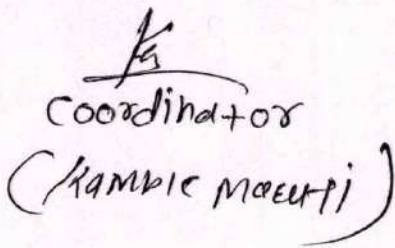 Coordinator
(Kamble Maruti)